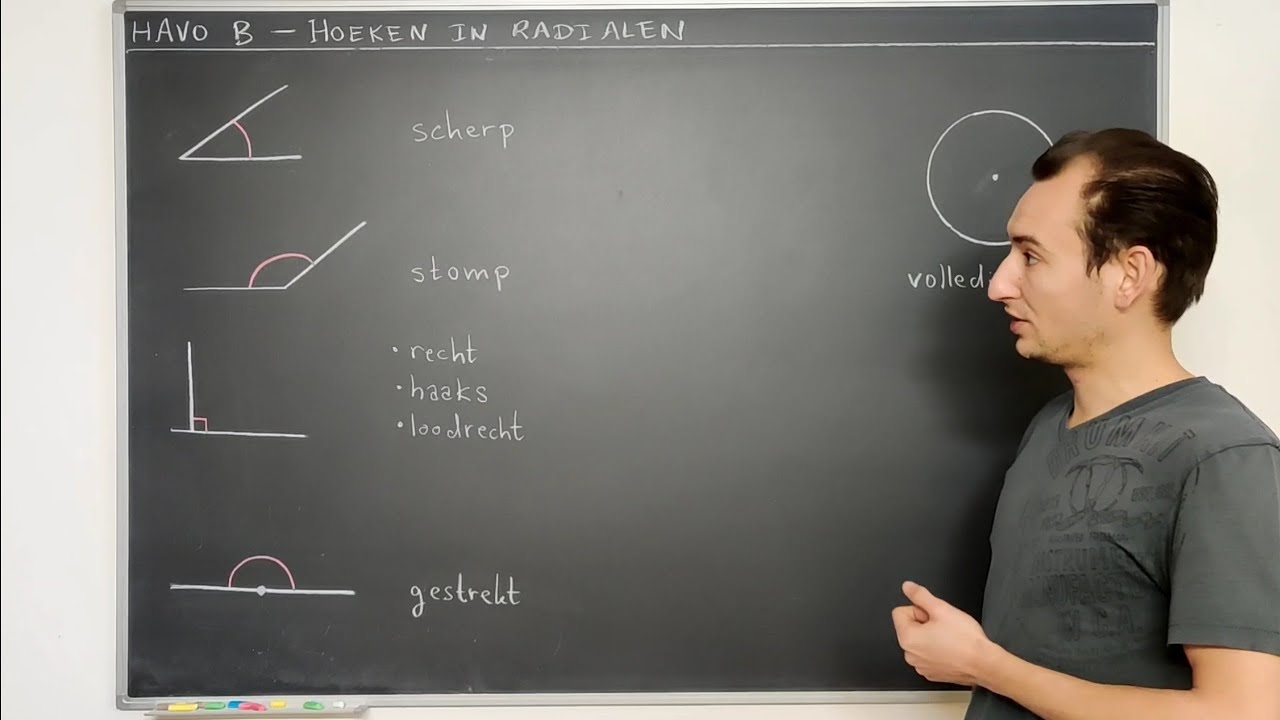 HAVO B – HOEKEN IN RADIALEN
scherp
stomp
• recht
• haaks
• loodrecht
gestrekt